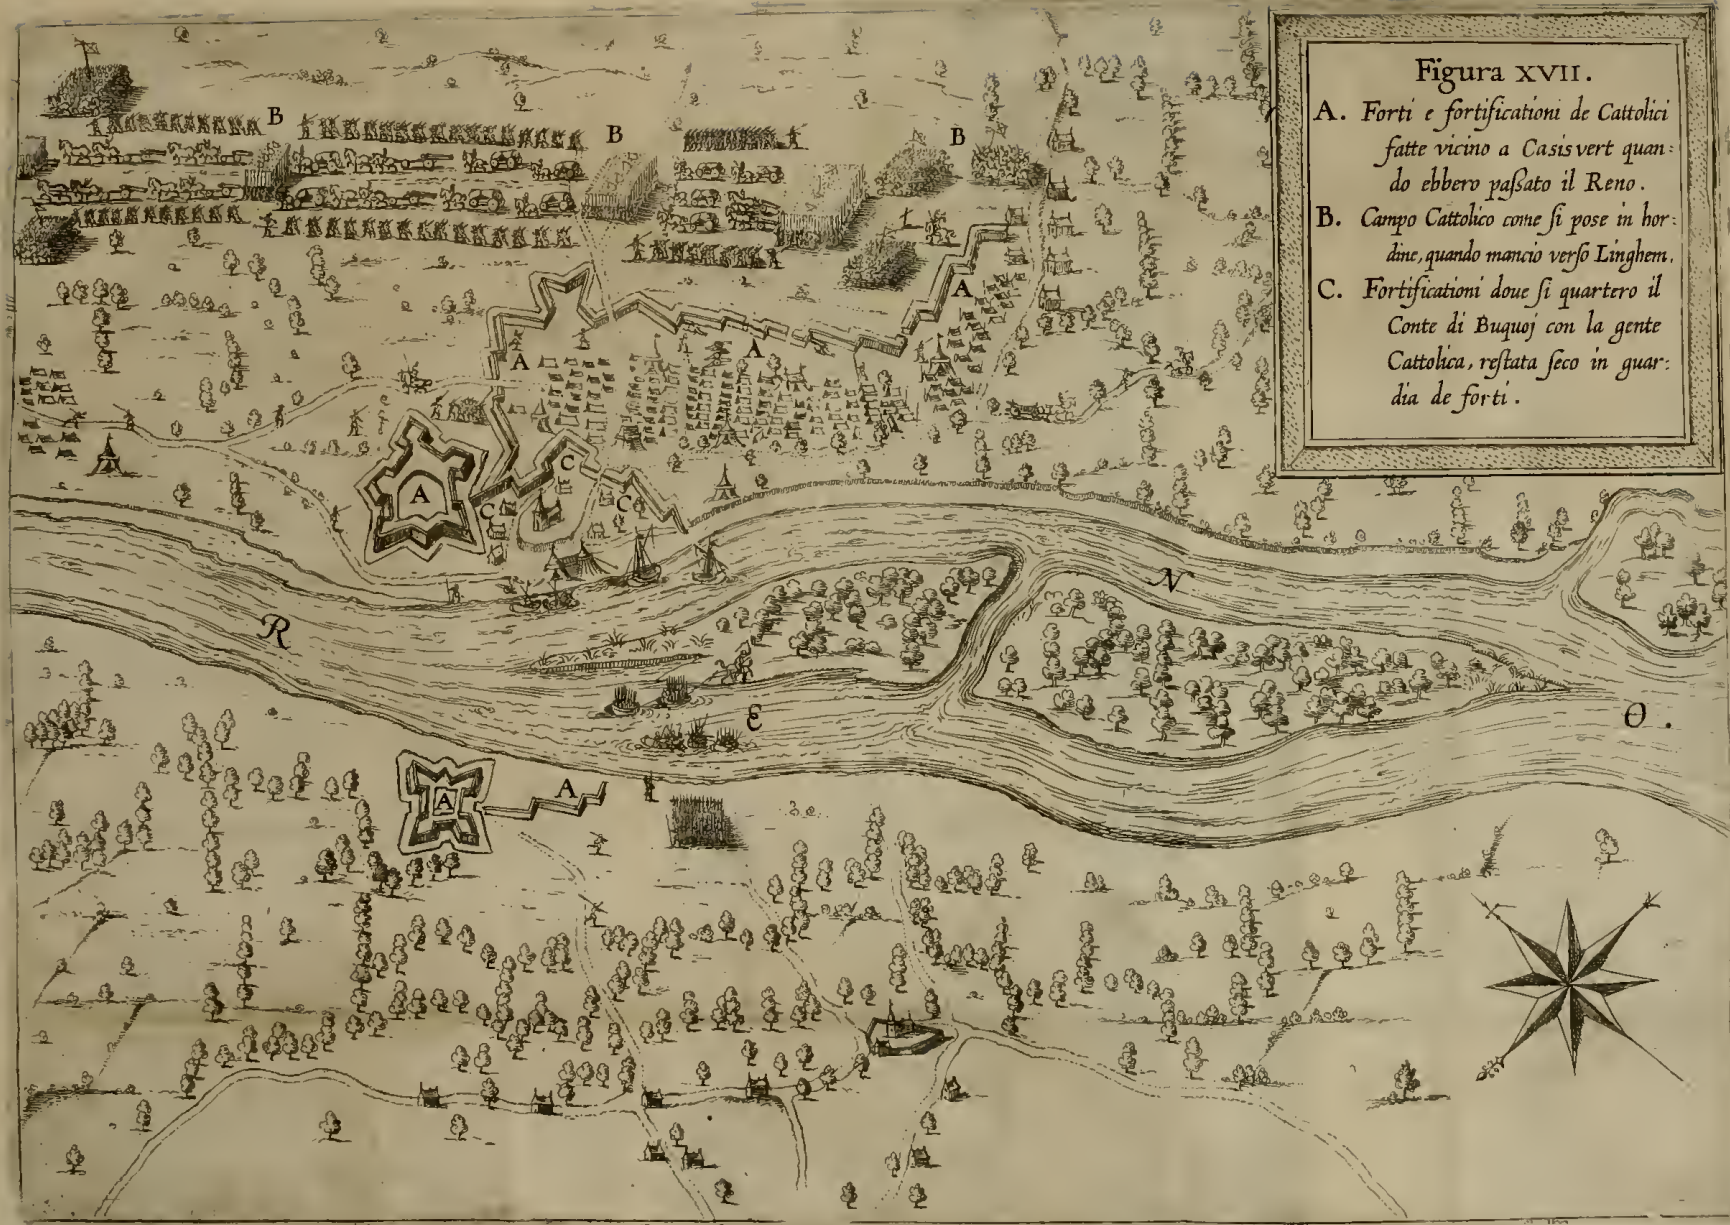 Figura XVII.
A. Forti e fortificationi de Cattolici
fatte vicino a Casisvert quan:
do ebbero paſsato il Reno.
B. Campo Cattolico come ſi pose in hor:
dine, quando mancio verſo Linghem.
C. Fortificationi doue ſi quartero il
Conte di Buquoj con la gente
Cattolica, reſtata ſeco in guar:
dia de forti.
B B B
A
A A
C
A
C C
N
R
E O.
A A